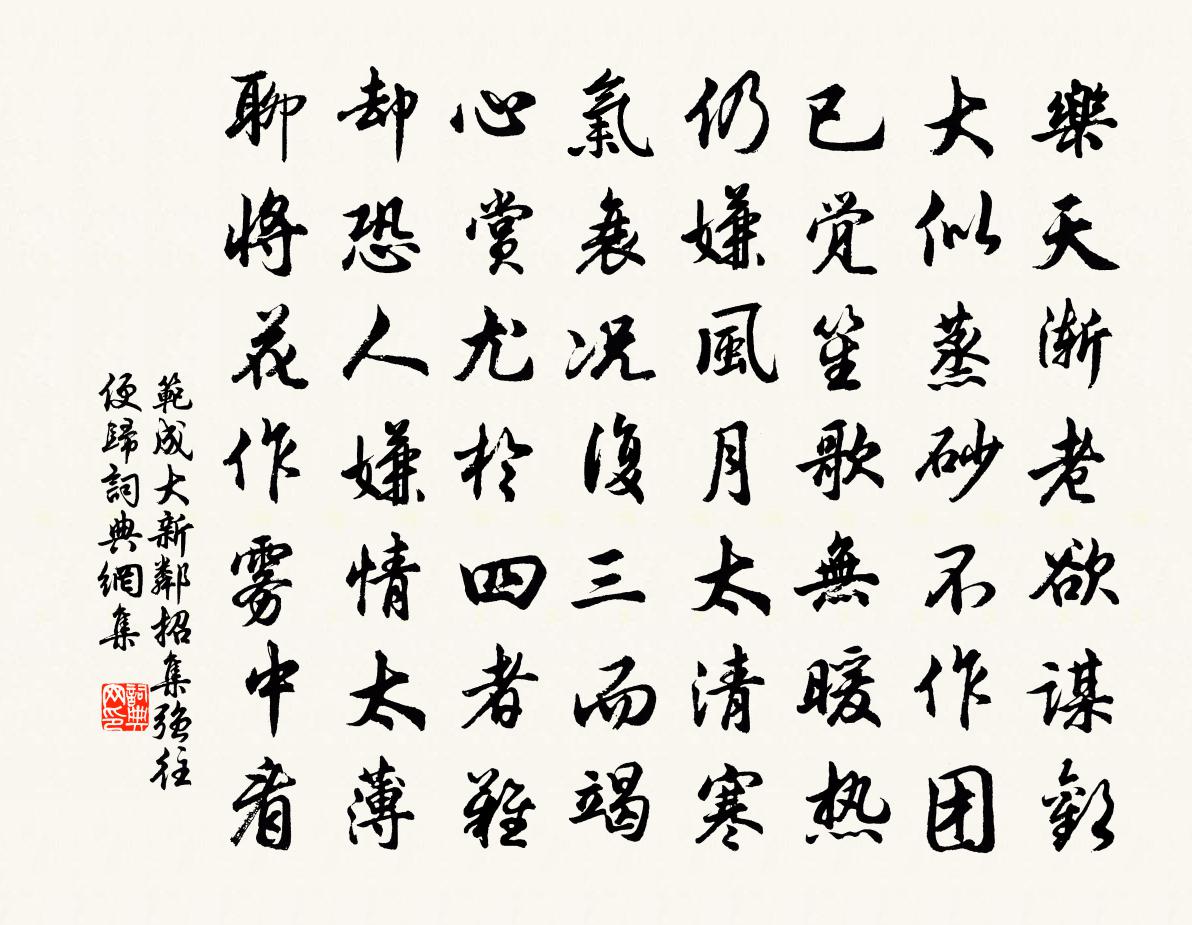 樂天漸老欲謀歡
大似蒸砂不作团
已覚笙歌無暖热
仍嫌風月太清寒
氣衰况復三而竭
心賞尤於四者難
却恐人嫌情太薄
聊將花作雾中看
範成大新鄰招集強往
便歸詞典網集
詞典网印